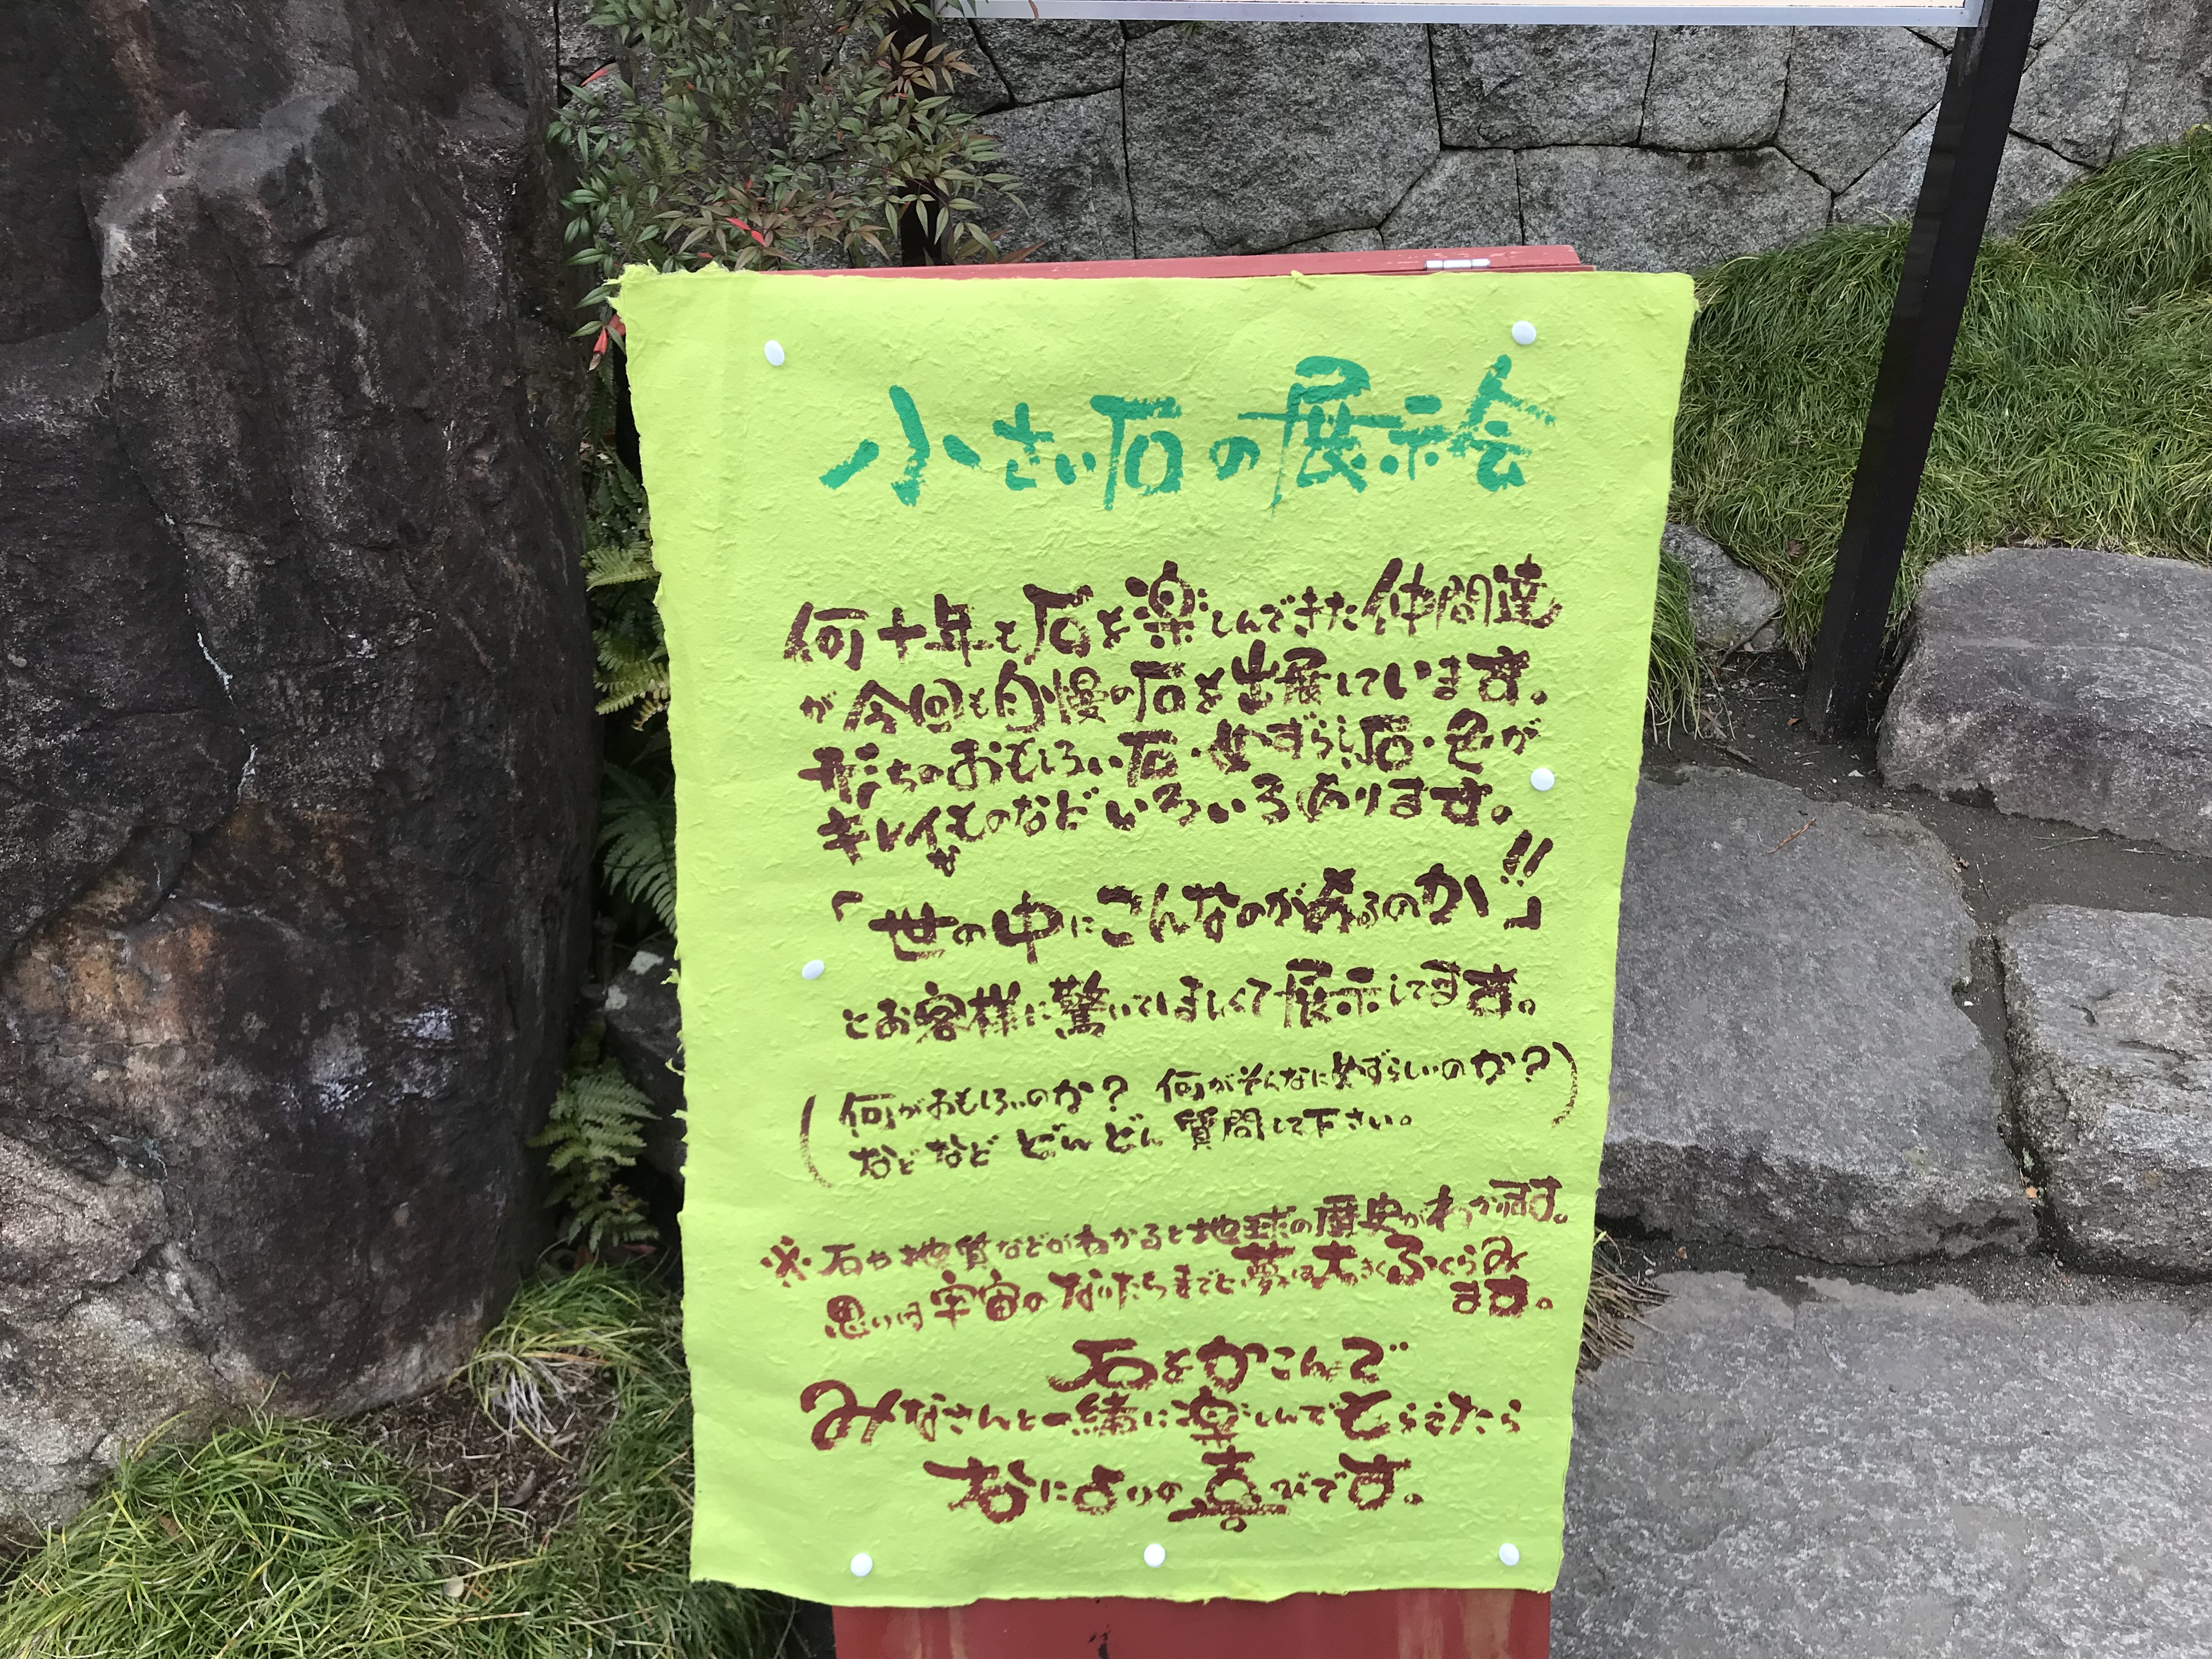 小さい石の展示会
何十年と石を楽しんできた仲間達
が今回も自慢の石を出展しています。
形ちのおもしろい石・めずらし石・色が
キレイなものなどいろいろあります。
「世の中にこんなのがあるのか!!」
とお客様に驚いてほしくて展示してます。
(何がおもしろいのか? 何がそんなにめずらしいのか?
などなど どんどん質問して下さい。)
※石や地質などがわかると地球の歴史がわかります。
思いは宇宙のなりたちまでと夢は大きくふくらみ
ます。
石をかこんで
みなさんと一緒に楽しんでもらえたら
なによりの喜びです。